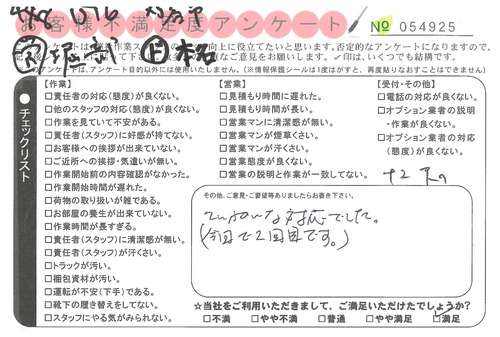 お客様不満足度アンケート
№ 054925
チェックリスト
【作業】
□責任者の対応(態度)が良くない。
□他のスタッフの対応(態度)が良くない。
□作業を見ていて不安がある。
□責任者(スタッフ)に好感が持てない。
□お客様への挨拶が出来ていない。
□ご近所への挨拶・気遣いが無い。
□作業開始前の内容確認がなかった。
□作業開始時間が遅れた。
□荷物の取り扱いが雑である。
□お部屋の養生が出来ていない。
□作業時間が長すぎる。
□責任者(スタッフ)に清潔感が無い。
□責任者(スタッフ)が汗くさい。
□トラックが汚い。
□梱包資材が汚い。
□運転が不安(下手)である。
□靴下の履き替えをしてない。
□スタッフにやる気がみられない。
【営業】
□見積もり時間に遅れた。
□見積もり時間が長い。
□営業マンに清潔感が無い。
□営業マンが煙草くさい。
□営業マンが汗くさい。
□営業態度が良くない。
□営業の説明と作業が一致してない。
【受付・その他】
□電話の対応が良くない。
□オプション業者の説明
・作業が良くない。
□オプション業者の対応
(態度)が良くない。
その他、ご意見・ご要望等ありましたらお書き下さい。
ていねいな対応でした。
(今回で2回目です。)
☆当社をご利用いただきまして、ご満足いただけたでしょうか?
□不満 □やや不満 □普通 □やや満足 □満足